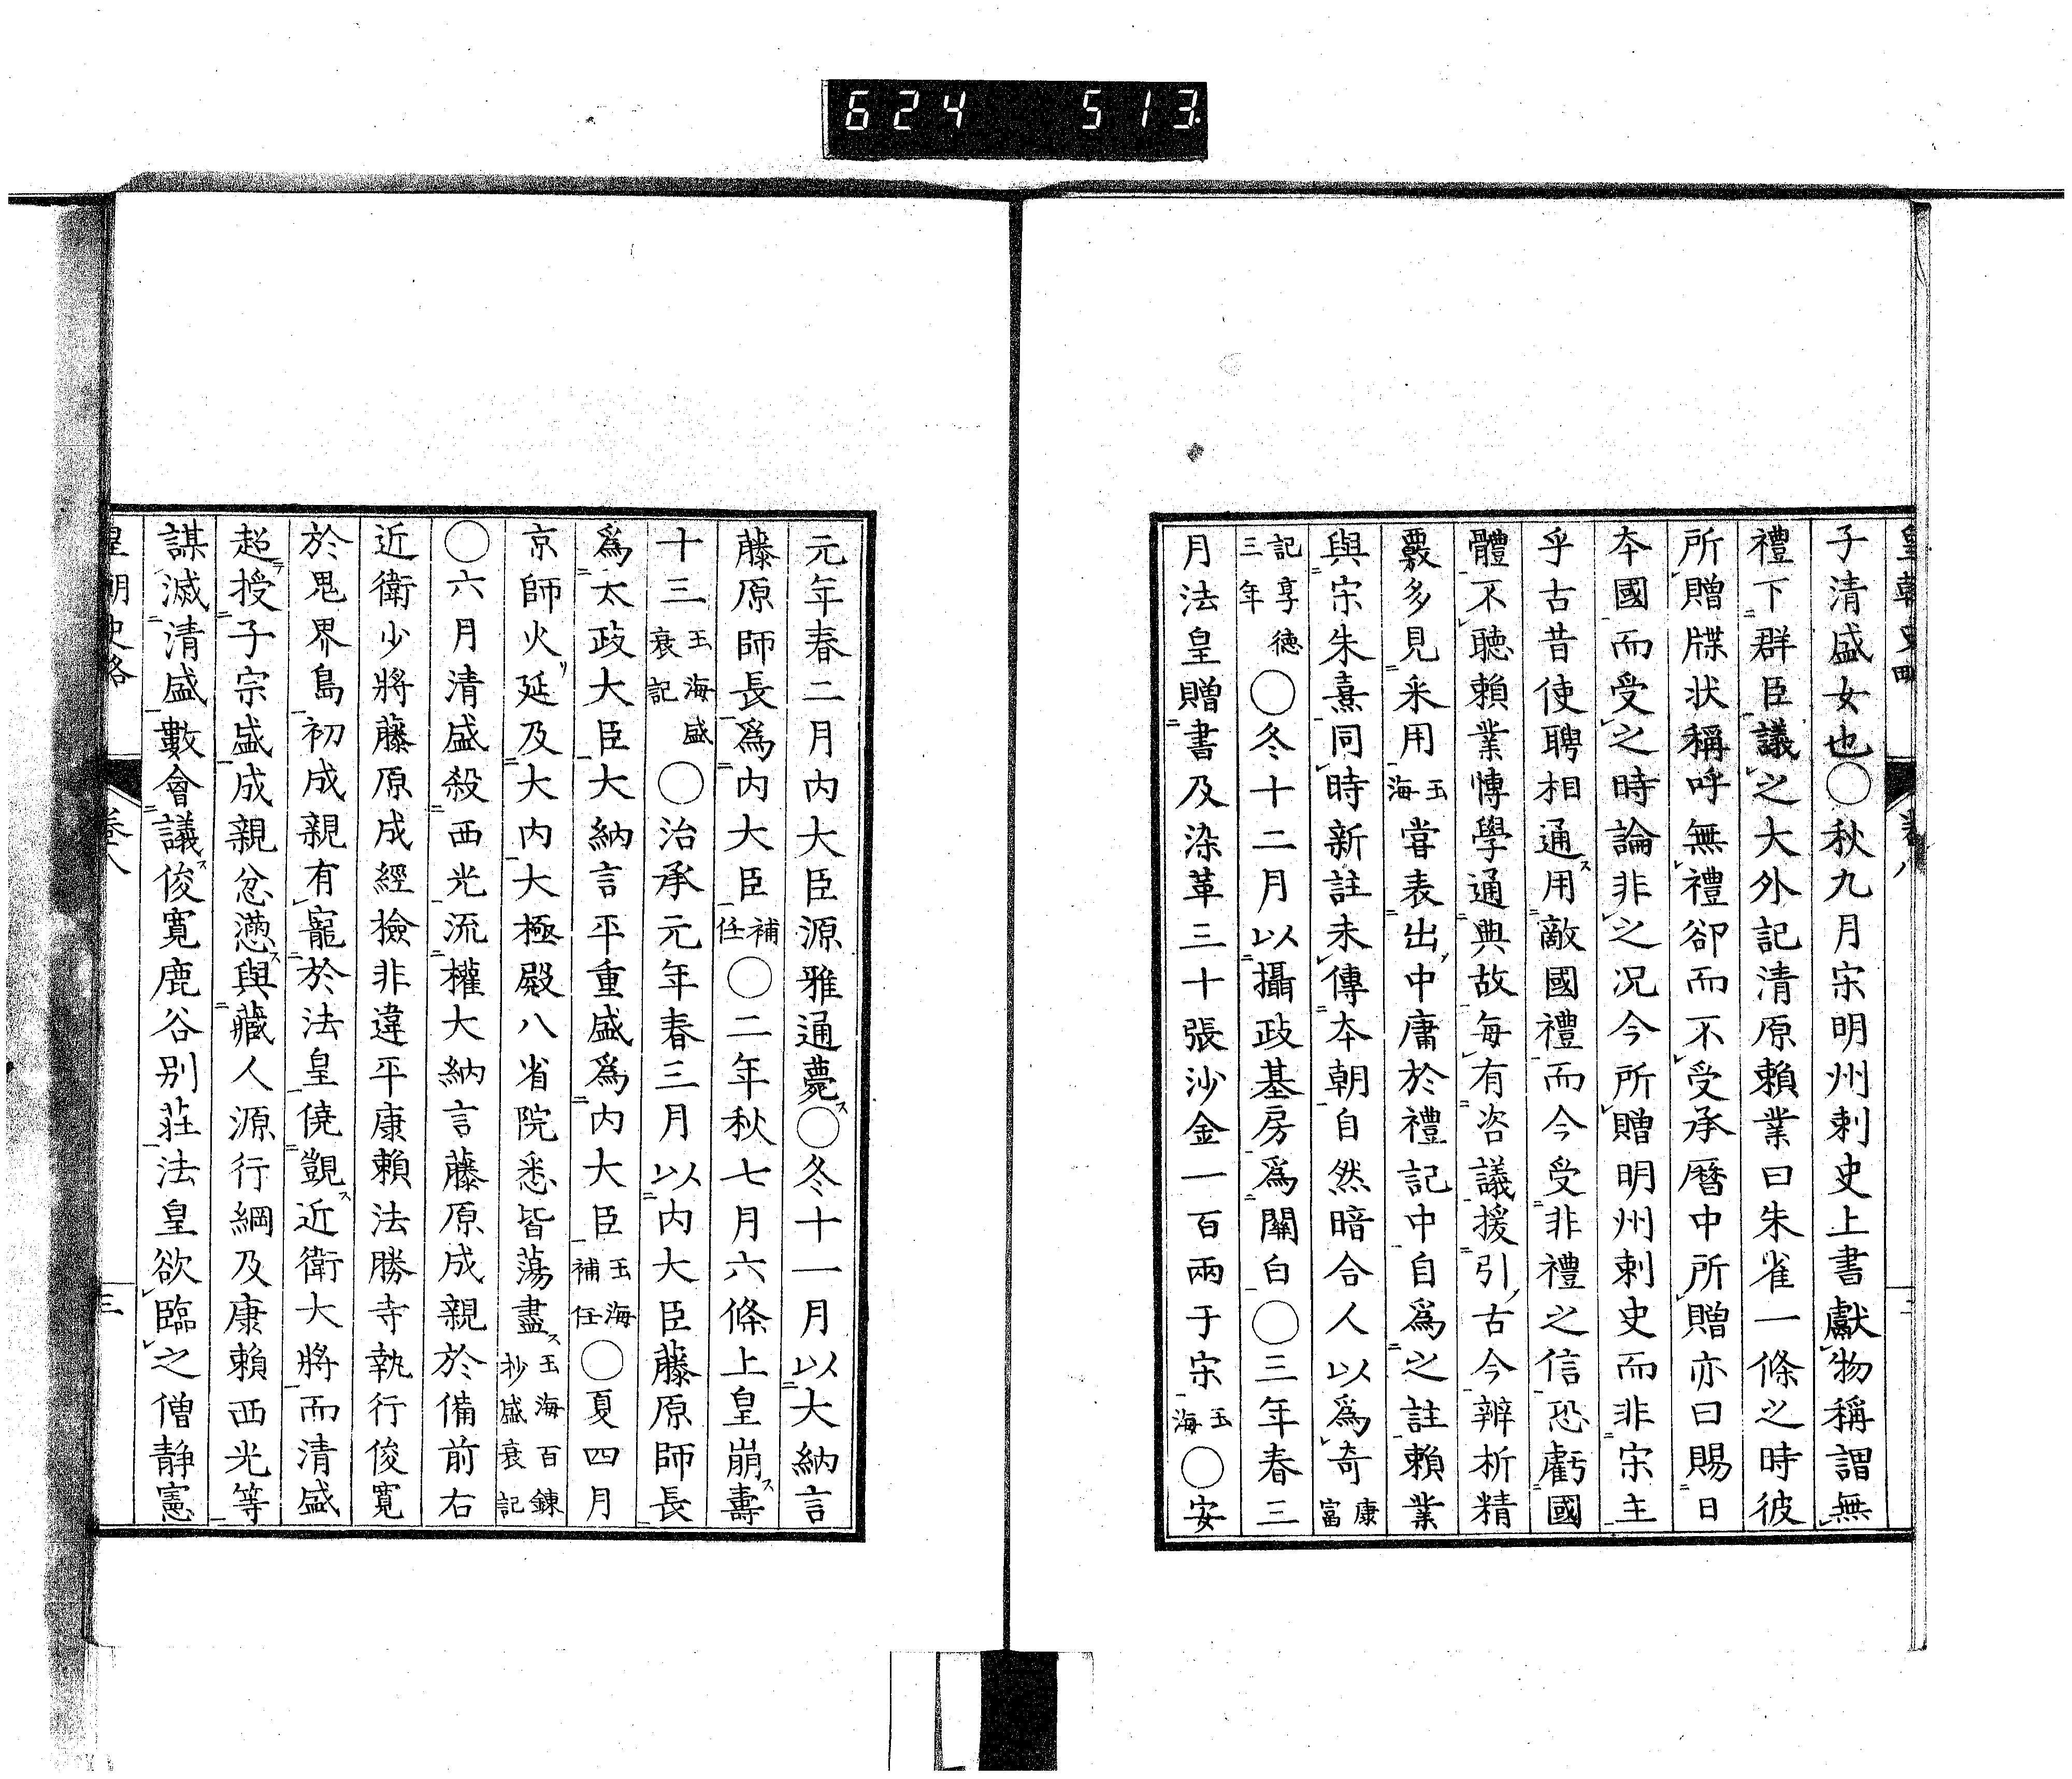 624 513
皇朝史略 卷八 二
子清盛女也○秋九月宋明州刺史上書獻物稱謂無
禮下群臣議之大外記清原賴業曰朱雀一條之時彼
所贈牒状稱呼無禮卻而不受承曆中所贈亦曰賜日
本國而受之時論非之况今所贈明州刺史而非宋主
乎古昔使聘相通用敵國禮而今受非禮之信恐虧國
體不聽賴業博學通典故每有咨議援引古今辨析精
覈多見采用玉海嘗表出中庸於禮記中自爲之註賴業
與宋朱熹同時新註未傳本朝自然暗合人以爲奇康富
記享德三年○冬十二月以攝政基房爲關白○三年春三
月法皇贈書及染革三十張沙金一百兩于宋玉海○安
元年春二月内大臣源雅通薨○冬十一月以大納言
藤原師長爲内大臣補任○二年秋七月六條上皇崩壽
十三玉海盛衰記○治承元年春三月以内大臣藤原師長
爲太政大臣大納言平重盛爲内大臣玉海補任○夏四月
京師火延及大内大極殿八省院悉皆蕩盡玉海百鍊抄盛衰記
○六月清盛殺西光流權大納言藤原成親於備前右
近衛少將藤原成經撿非違平康賴法勝寺執行俊寛
於鬼界島初成親有寵於法皇僥覬近衛大將而清盛
超授子宗盛成親忿懣與藏人源行綱及康賴西光等
謀滅清盛數會議俊寛鹿谷別莊法皇欲臨之僧静憲
皇朝史略 卷八 三